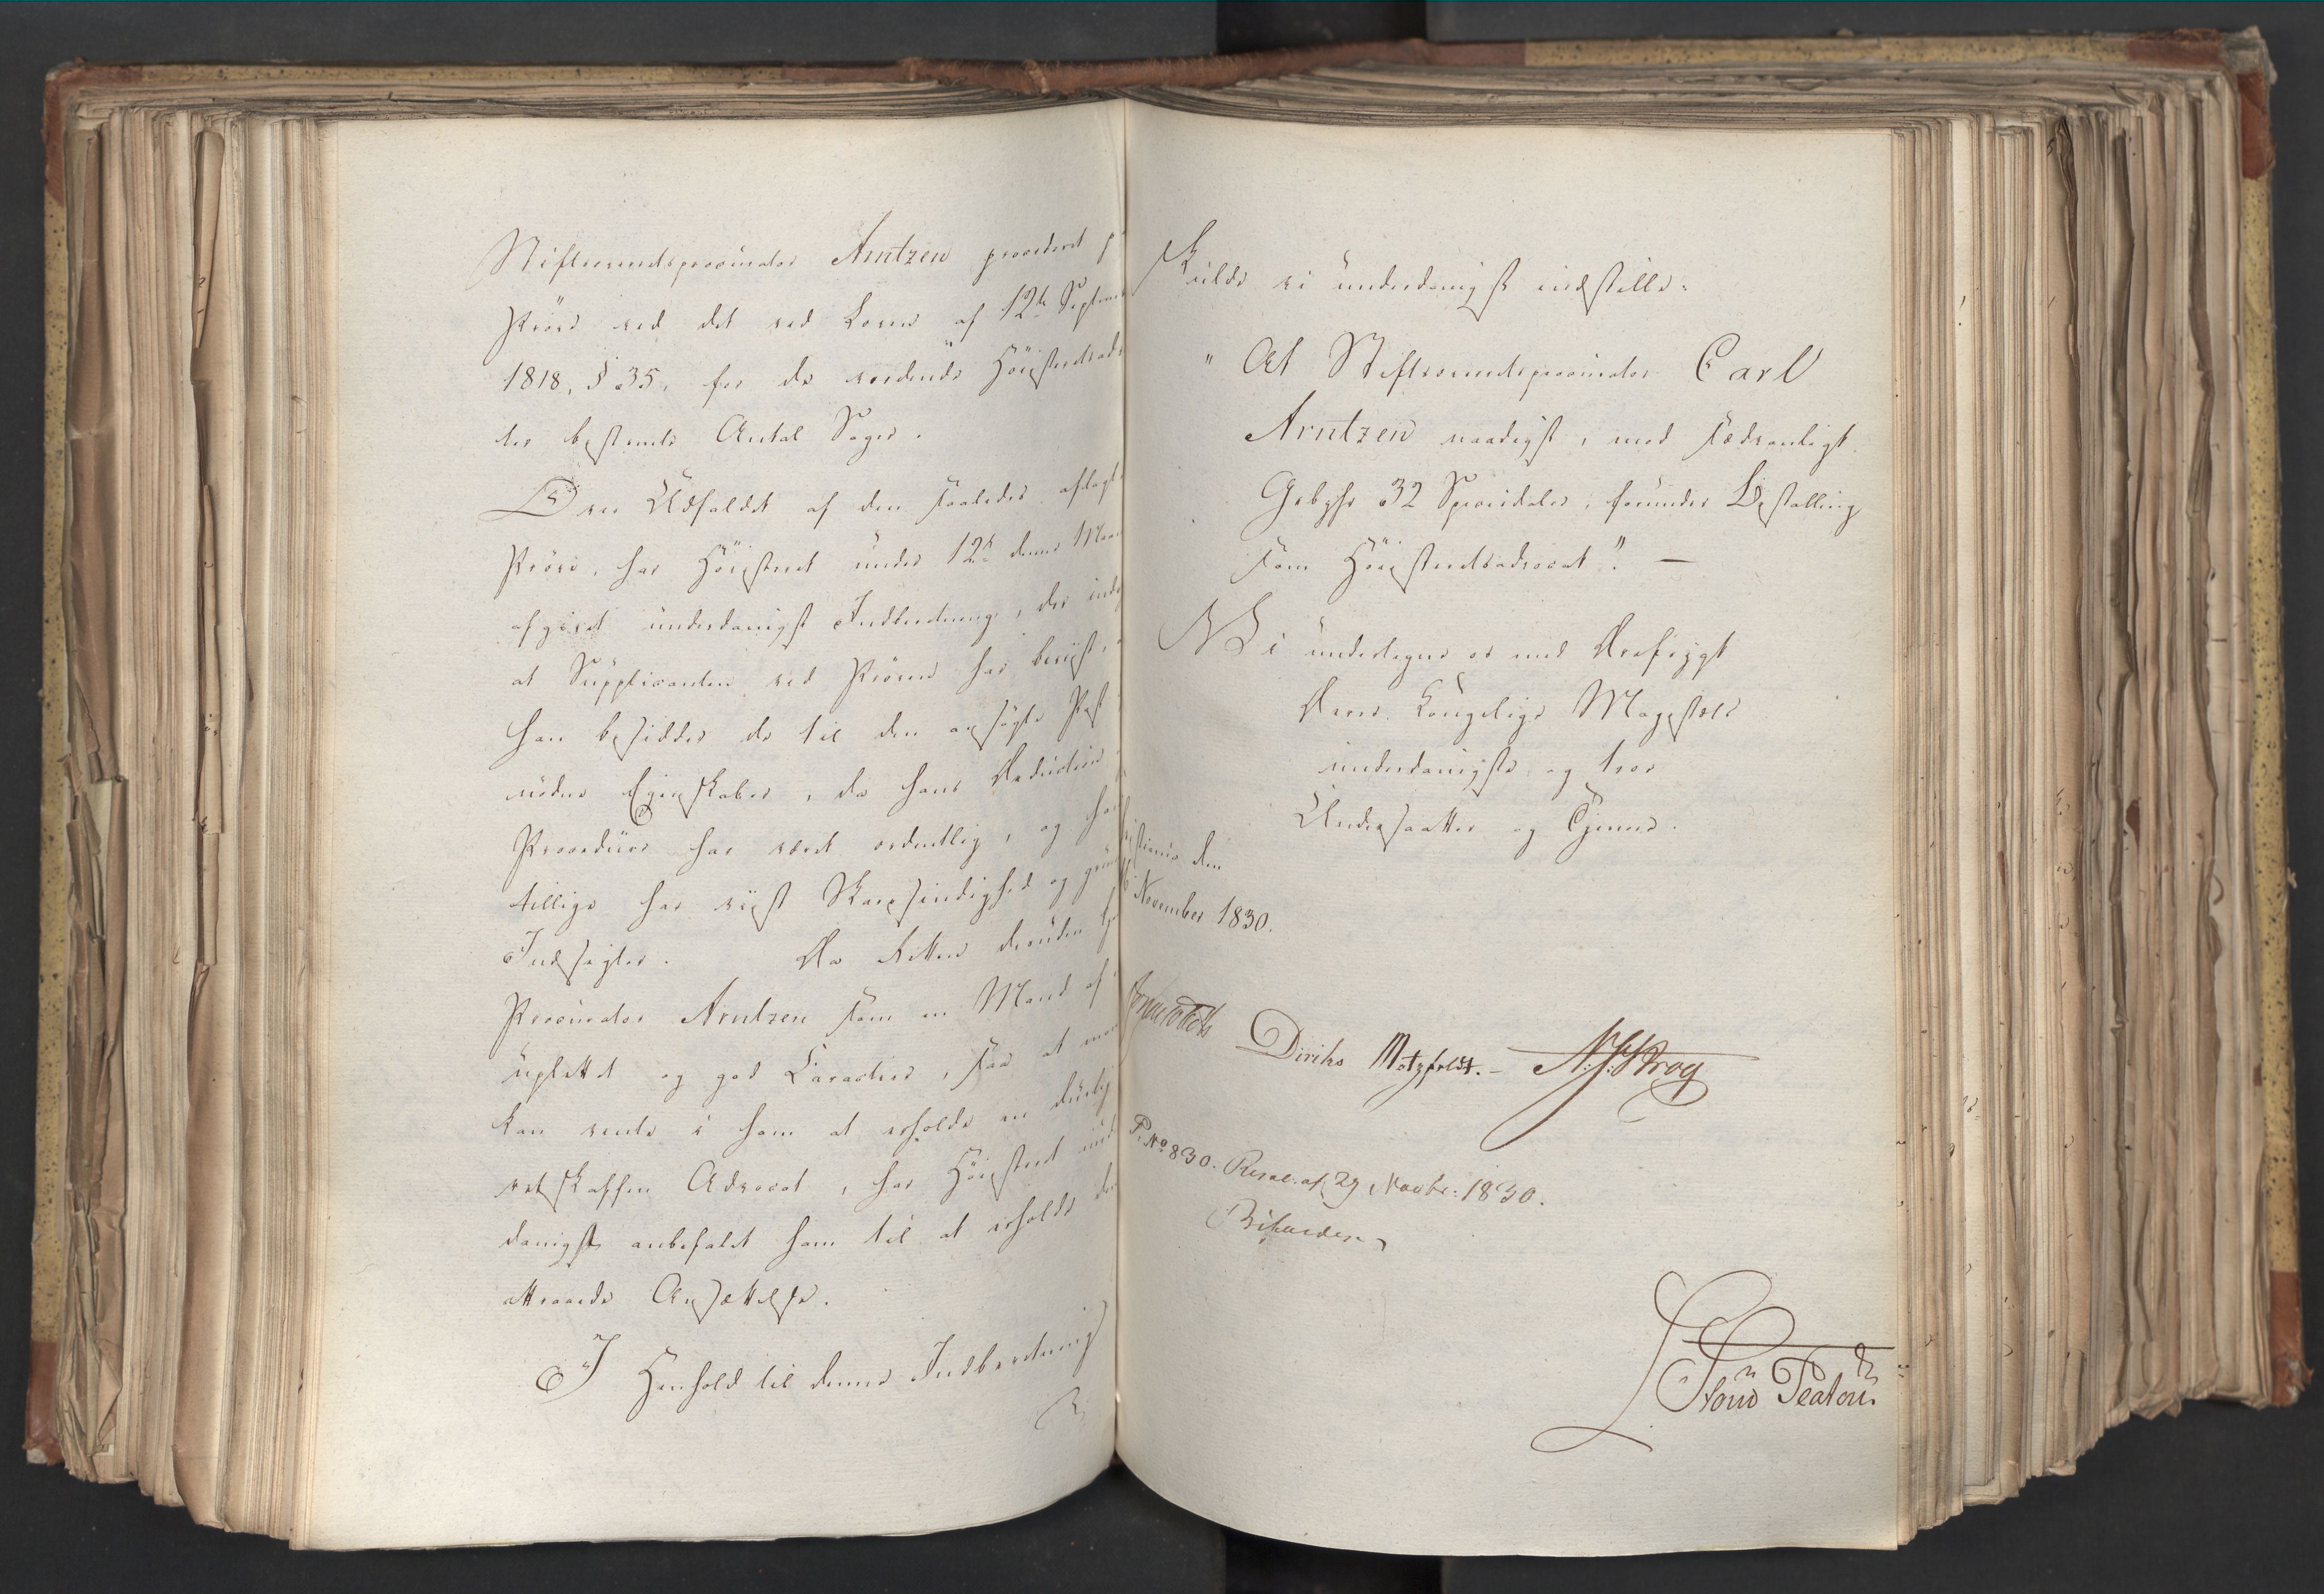 Stiftsoverretsprocurator Arntzen procederet
Prøve ved det ved Loven af 12te Septemb
1818, § 35, for de vordende Höiesteretsadvoca
ter bestemte Antal Sager.
Om Udfaldet af den saaledes aflagte
Prøve, har Höiesteret under 12te denne Maan
afgivet underdanigst Indberetning, der
at Supplicanten ved Prøven har beviist,
han besidder de til den ansøgte Post
nødne Egenskaber, da hans Deduction
Procedure har været ordentlig, og han
tillige har viist Skarpsindighed og
Indsigter. Da Retten desuden
Procurator Arntzen som en Mand af
uplettet og god Caracteer, saa at man
kan vente i ham at erholde en duelig
retskaffen Advocat, har Höiesteret under
danigst anbefalet ham til at erholde den
attraaede Ansættelse.
I Henhold til denne Indberetning
Skulde vi underdanigst indstille:
" At Stiftsoverretsprocurator Carl
Arntzen naadigst, mod sædvanligt
Gebyhr 32 Speciedaler, forundes Bestalling
som Höiesteretsadvocat". —
Vi undertegne os med Ærefrygt
Deres Kongelige Majestæts
underdanigste og troe
Undersaatter og Tjenere.
istiania den
November 1830.
Diriks Motzfeldt. - N. J. Krog
P. No 830. Resol. af 29 Novbr: 1830.
Bifaldes